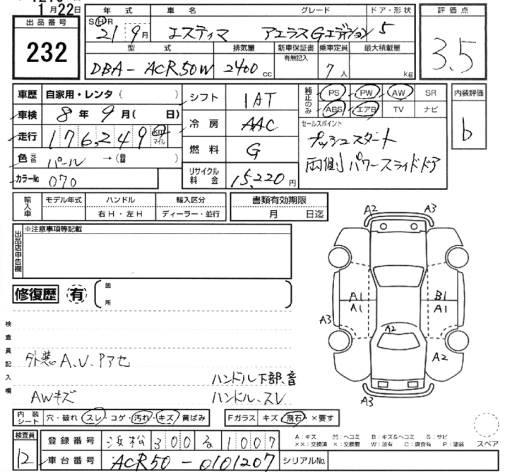 1月22日
出品番号
232
年式 車名 グレード ドア・形状
21 9月 エスティマ アエラスGエディション 5
型式 排気量 新車保証書 乗車定員 最大積載量
有無記入
DBA- ACR50W 2400 cc 7人 kg
評価点
3.5
車歴 自家用・レンタ( )
車検 8年 9月( 日)
走行 176,249 マイル
色 元色 パール →( )
カラーNo 070
シフト 1AT
冷房 AAC
燃料 G
リサイクル料金 15,220円
純正のみ PS PW AW SR
ABS エアB TV ナビ
セールスポイント
プッシュスタート
両側パワースライドドア
内装評価
b
輸入車 モデル年式 ハンドル 輸入区分
右H・左H ディーラー・並行
書類有効期限
月 日迄
出品店申告欄
※注意事項等記載
修復歴 有
箇所
検査員記入欄
外装A.U.Pアセ
AWキズ
ハンドル下部音
ハンドル、スレ
A2 A3
A2 A2
A1 B1
A1 A1
A3 A2
A2 A2
A3
内装シート 穴・破れ スレ コゲ・汚れ・キズ 黄ばみ
Fガラス キズ 飛石 ×要す
検査員
12
登録番号 浜松300る1007
車台番号 ACR50-0101207
シリアルNo.
スペア